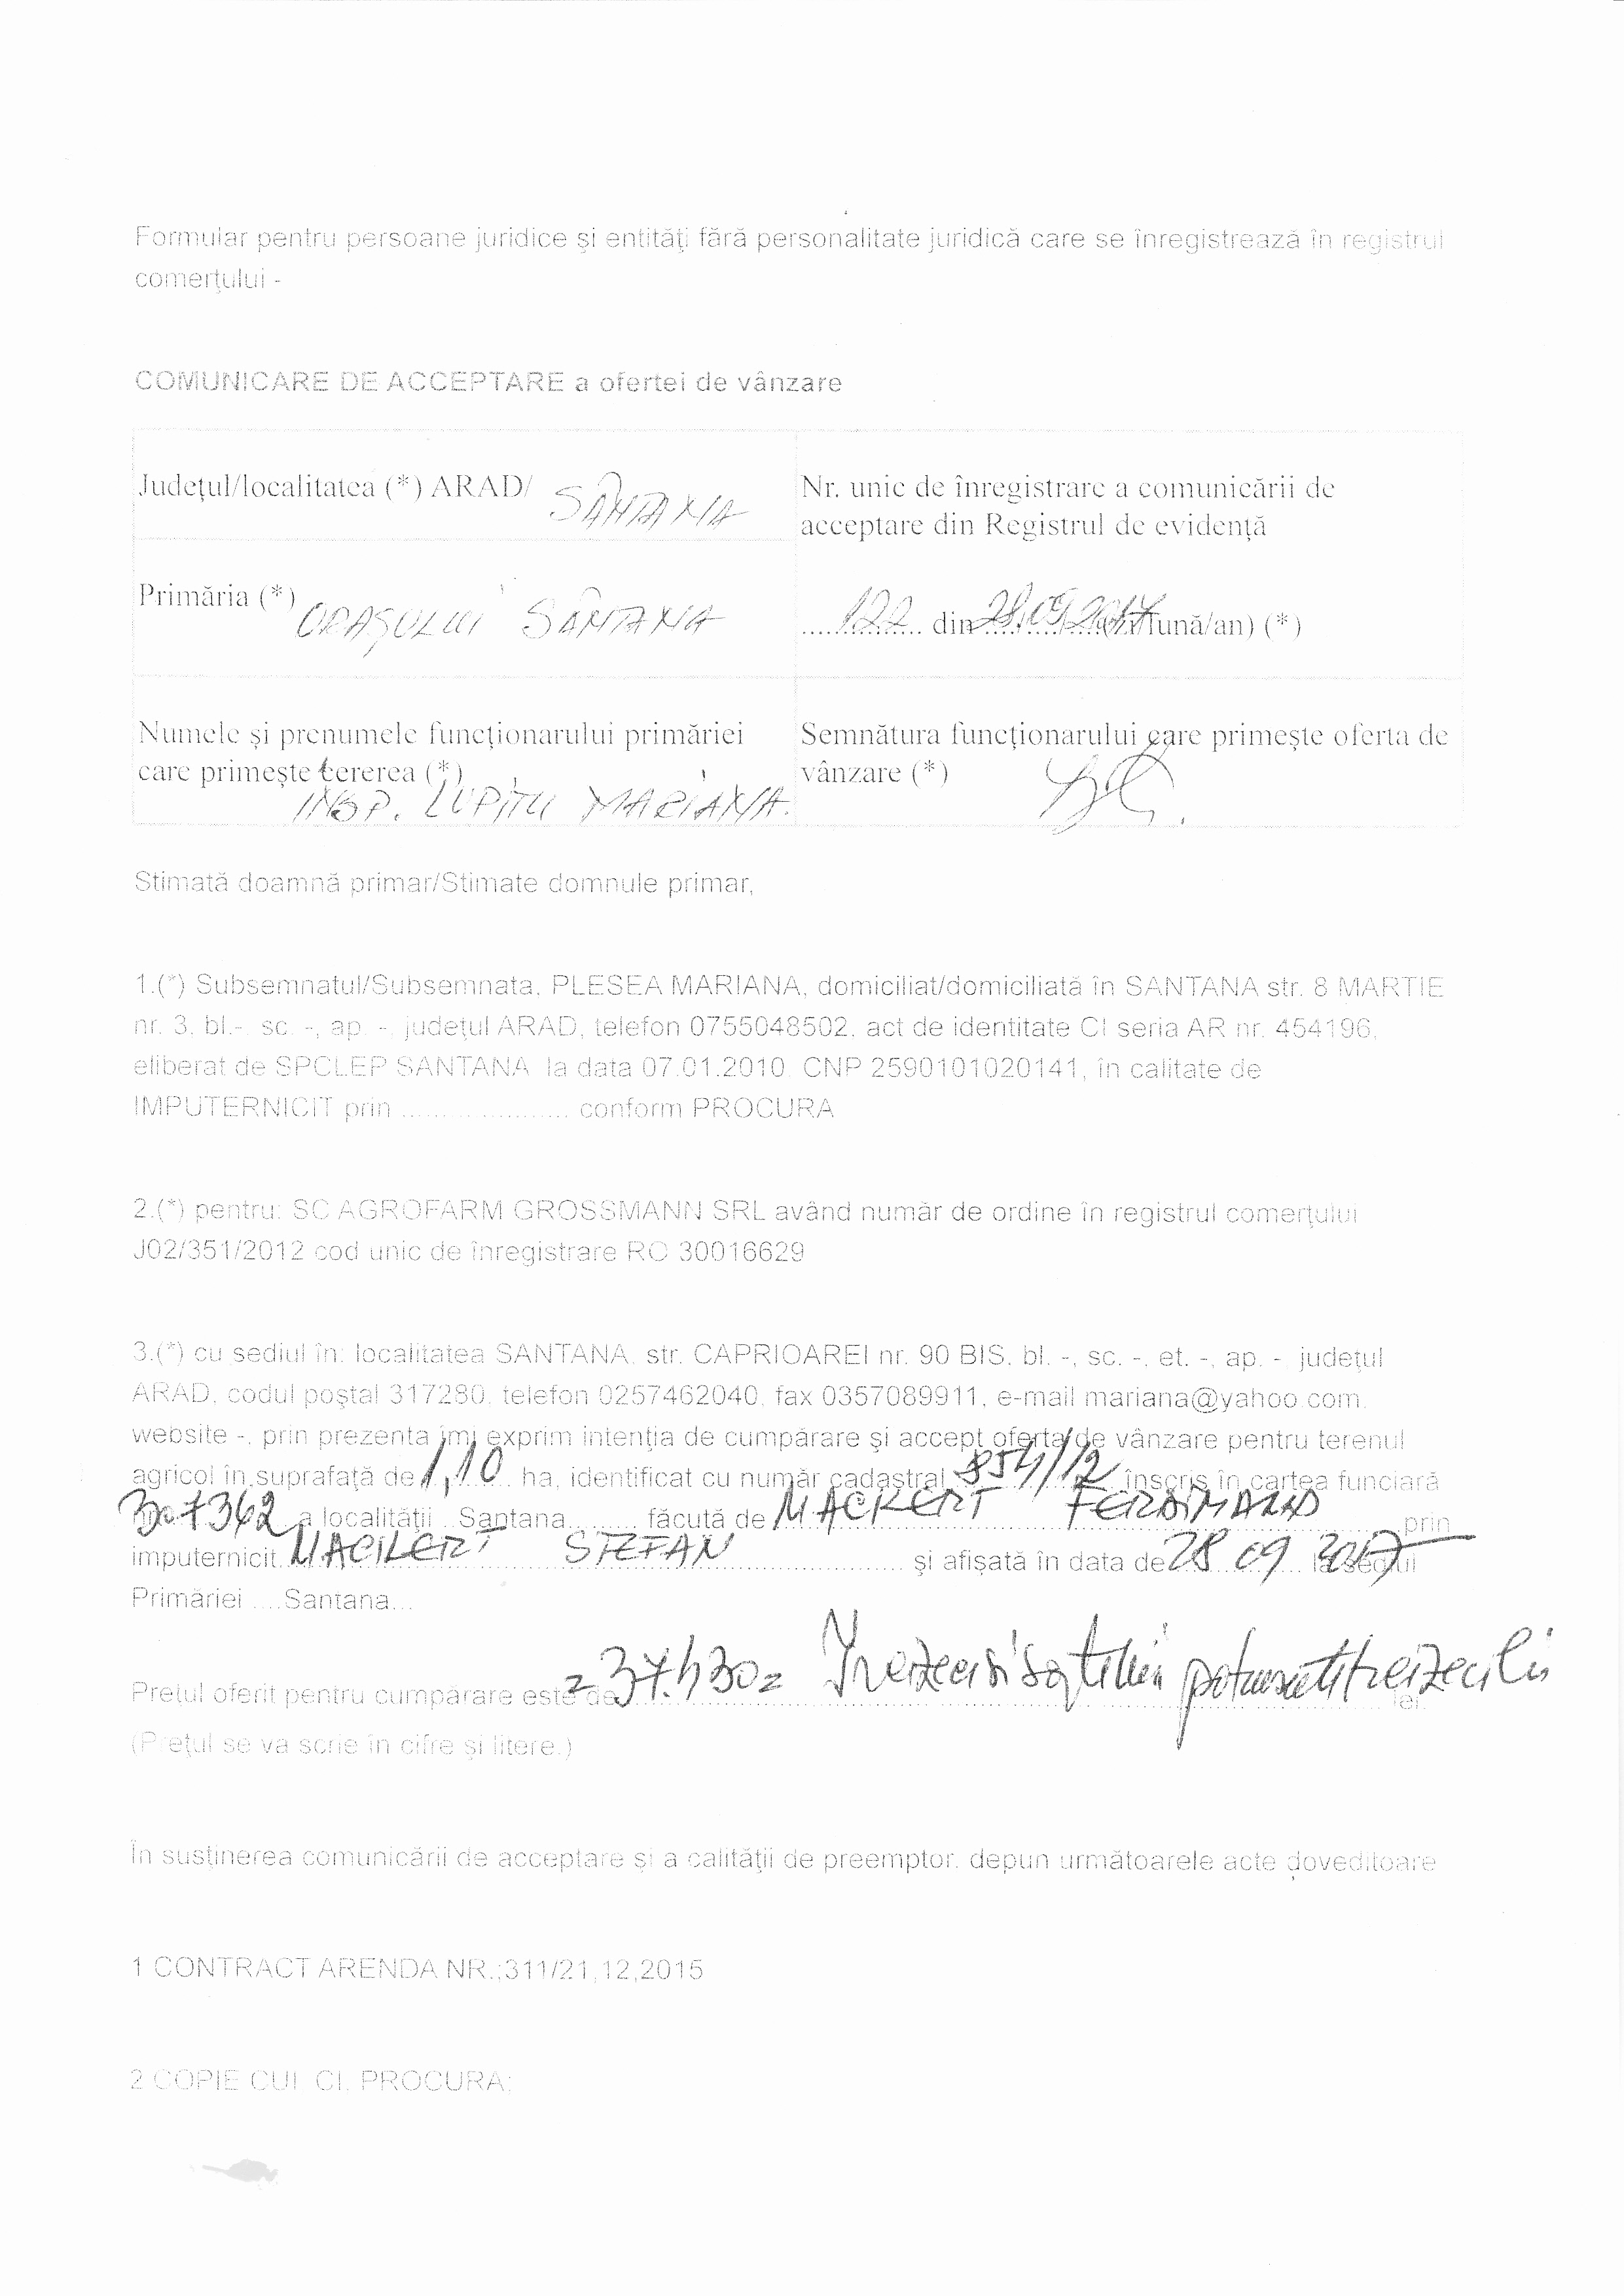 Formular pentru persoane juridice şi entităţi fără personalitate juridică care se înregistrează în registrul
comerţului -
COMUNICARE DE ACCEPTARE a ofertei de vânzare
Judeţul/localitatea (*) ARAD/ SÂNTANA
Nr. unic de înregistrare a comunicării de
acceptare din Registrul de evidenţă
Primăria (*) ORAŞULUI SÂNTANA
....122.... din 28.09.2017 lună/an) (*)
Numele şi prenumele funcţionarului primăriei
care primeşte cererea (*)
INSP. LUPITU MARIANA.
Semnătura funcţionarului care primeşte oferta de
vânzare (*)
Stimată doamnă primar/Stimate domnule primar,
1.(*) Subsemnatul/Subsemnata, PLESEA MARIANA, domiciliat/domiciliată în SANTANA str. 8 MARTIE
nr. 3, bl.-, sc. -, ap. -, judeţul ARAD, telefon 0755048502, act de identitate CI seria AR nr. 454196,
eliberat de SPCLEP SANTANA la data 07.01.2010, CNP 2590101020141, în calitate de
IMPUTERNICIT prin ...................... conform PROCURA
2.(*) pentru: SC AGROFARM GROSSMANN SRL având număr de ordine în registrul comerţului
J02/351/2012 cod unic de înregistrare RO 30016629
3.(*) cu sediul în: localitatea SANTANA, str. CAPRIOAREI nr. 90 BIS, bl. -, sc. -, et. -, ap. - judeţul
ARAD, codul poştal 317280, telefon 0257462040, fax 0357089911, e-mail mariana@yahoo.com,
website -, prin prezenta îmi exprim intenţia de cumpărare şi accept oferta de vânzare pentru terenul
agricol în suprafaţă de 1,10 ha, identificat cu număr cadastral 854/12 înscris în cartea funciară
307362 a localităţii ..Santana.......... făcută de MACKERT FERDINAND prin
imputernicit MACKERT STEFAN şi afişată în data de 28 09 2017 la sediul
Primăriei ....Santana...
Preţul oferit pentru cumpărare este de =37.430= lei.
(Preţul se va scrie în cifre şi litere.)
În susţinerea comunicării de acceptare şi a calităţii de preemptor, depun următoarele acte doveditoare
1 CONTRACT ARENDA NR.;311/21,12,2015
2 COPIE CUI CI, PROCURA;